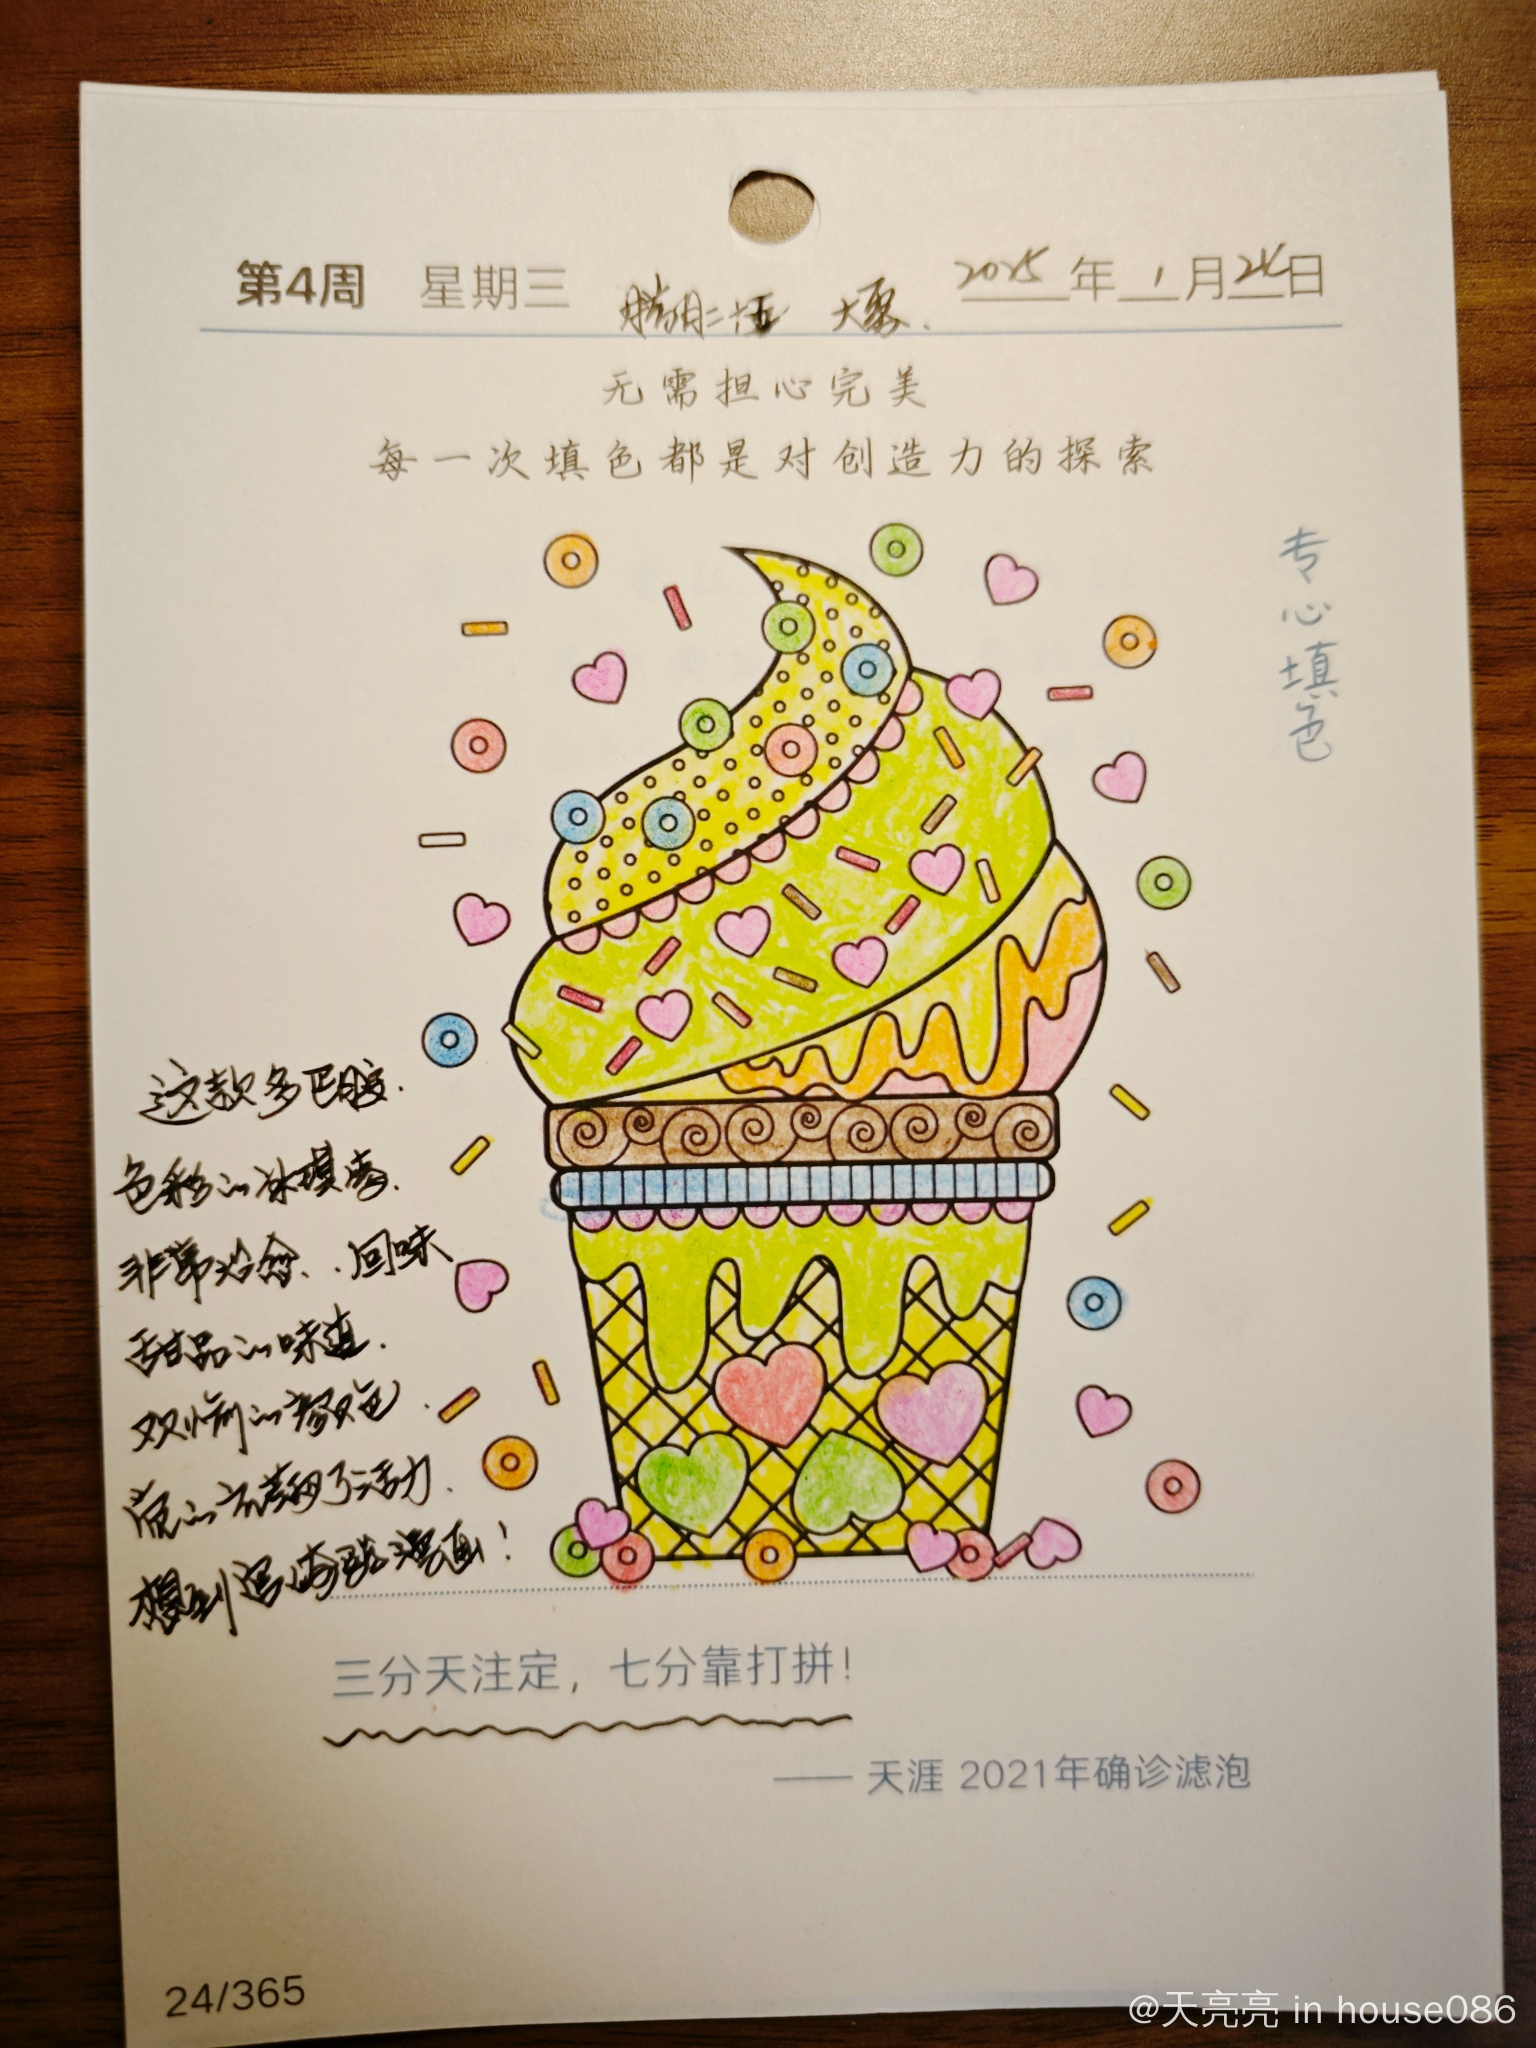 第4周 星期三 腊月二十五 大寒. 2025年1月24日
无需担心完美
每一次填色都是对创造力的探索
专心填色
这款多巴胺.
色彩的冰淇淋.
非常治愈..回味
甜品的味道.
双
的
了活力.
想到 漫画!
三分天注定，七分靠打拼!
—— 天涯 2021年确诊滤泡
24/365
@天亮亮 in house086